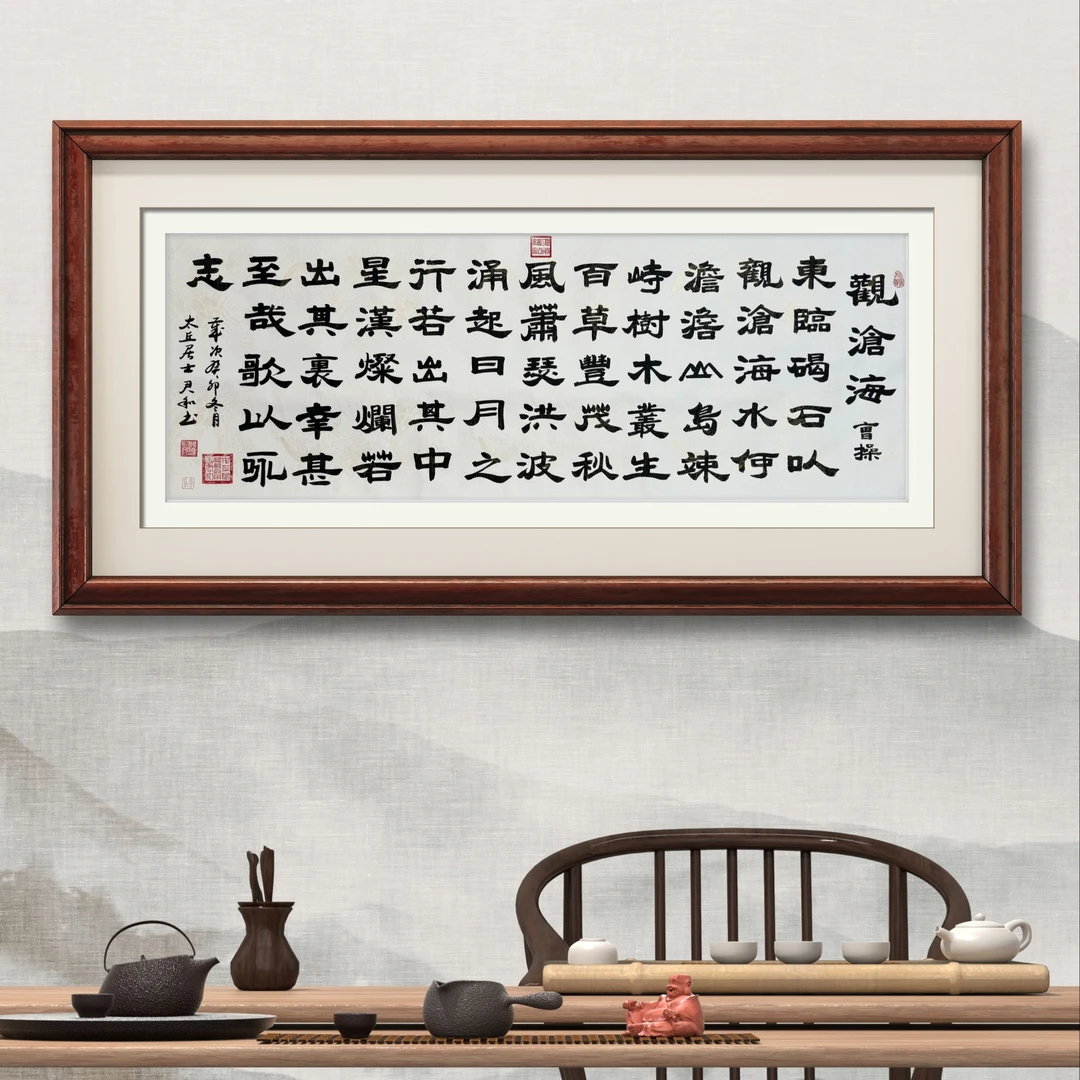 觀滄海 曹操
東臨碣石以
觀滄海水何
澹澹山島竦
峙樹木叢生
百草豐茂秋
風蕭瑟洪波
涌起日月之
行若出其中
星漢燦爛若
出其裏幸甚
至哉歌以咏
志
歲次癸卯冬月
太丘居士和书